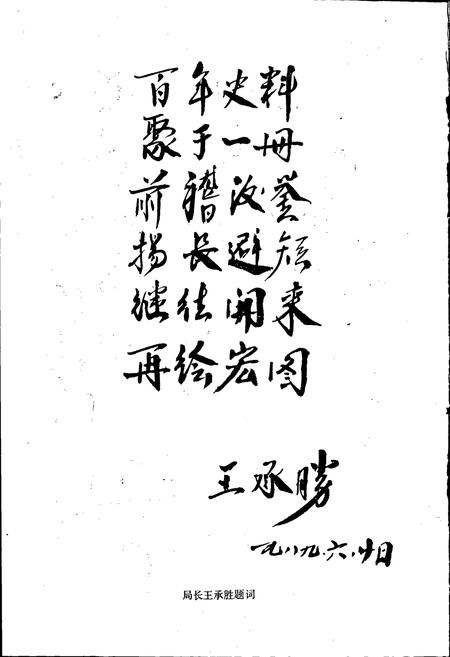 百年史料
聚于一册
前稽后鉴
扬长避短
继往开来
再绘宏图
王承勝
一九八九.六.廿日
局长王承胜题词